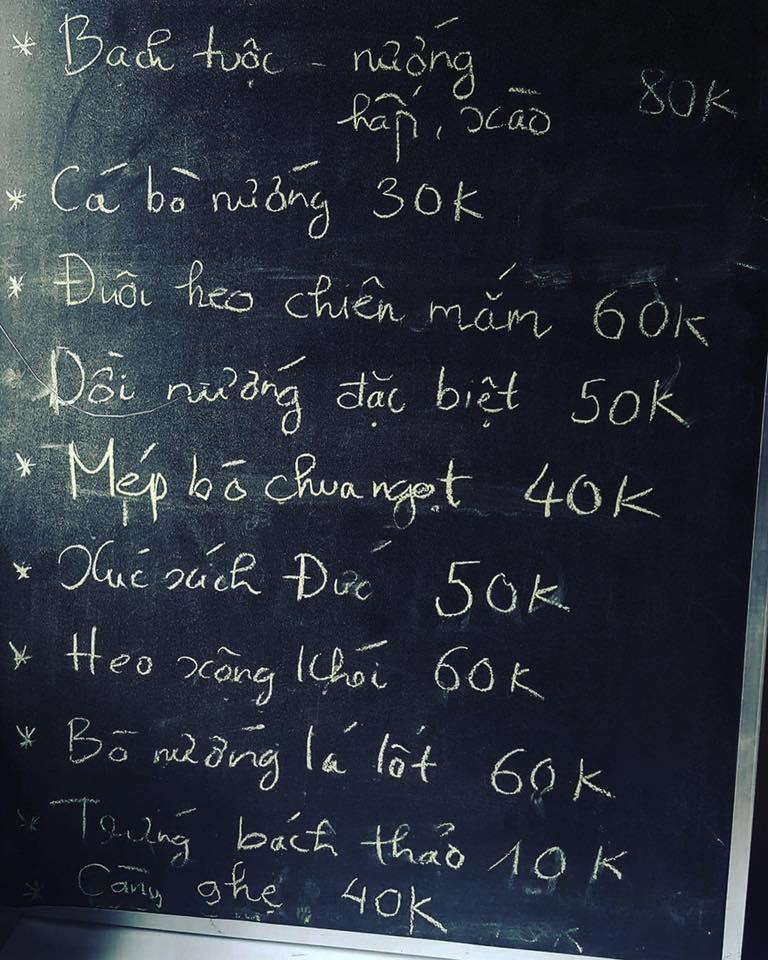 * Bạch tuộc - nướng
hấp, xào 80K
* Cá bò nướng 30K
* Đuôi heo chiên mắm 60K
Dồi nướng đặc biệt 50K
* Mép bò chua ngọt 40K
* Xúc xích Đức 50K
* Heo xông khói 60K
* Bò nướng lá lốt 60K
* Trứng bách thảo 10K
* Càng ghẹ 40K